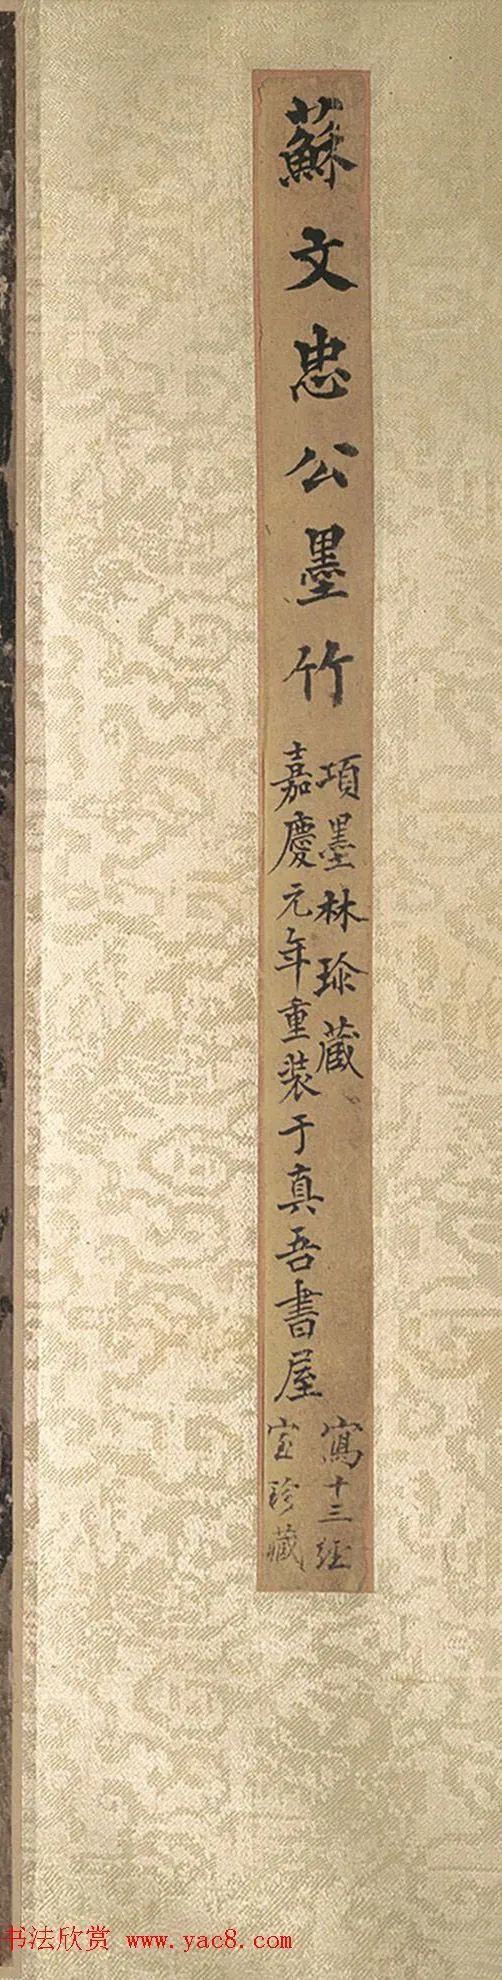 蘇文忠公墨竹
項墨林珍藏
嘉慶元年重装于真吾書屋
寫十三經
室珍藏
书法欣赏 www.yac8.com